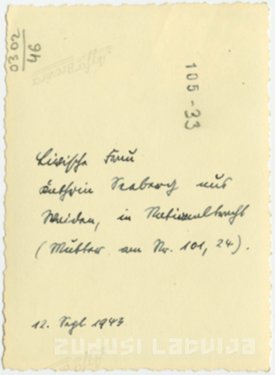 0302
46
105-33
Livische Frau
Kathrin Seeberg aus
Waiden, in Nationaltracht
(Mutter von Nr. 101, 24).
12. Sept 1943
zudusi Latvija